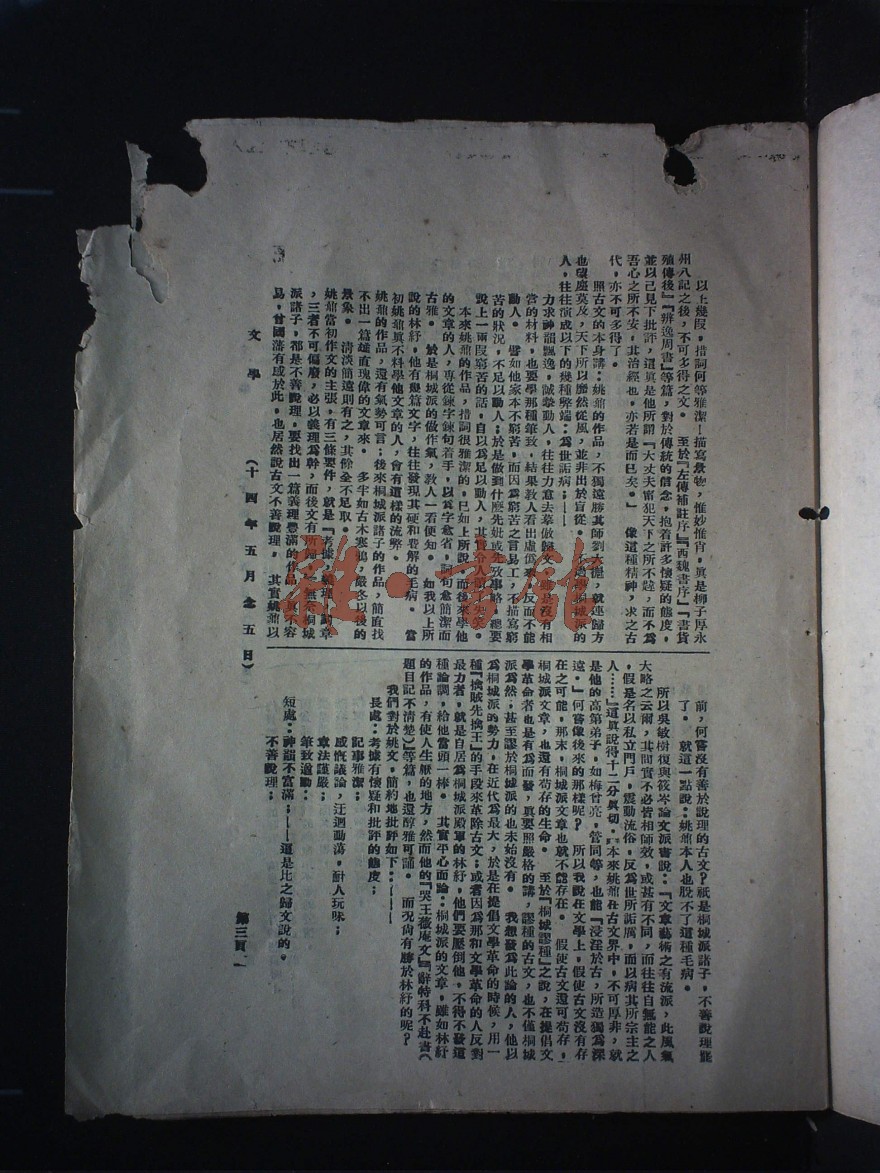 以上幾段,措詞何等雅潔!描寫景物,惟妙惟肖,眞是柳子厚永
州八記之後,不可多得之文。 至於『左傳補註序』『西魏書序』『書貨
殖傳後』『辨逸周書』等篇,對於傳統的信念,抱着許多懷疑的態度,
並以己見下批評,這眞是他所謂『大丈夫寧犯天下之所不韙,而不爲
吾心之所不安,其治經也,亦若是而已矣。』 像這種精神,求之古
代,亦不可多得了。
照古文的本身講:姚鼐的作品,不獨遠勝其師劉大櫆,就連歸方
也望塵莫及,天下所以靡然從風,並非出於盲從。 不過學桐城派的
人,往往演成以下的幾種弊端:爲世詬病;——
力求神韻飄逸,誠摯動人,往往力意去摹倣歸文,但是沒有相
當的材料,也要學那種筆致,結果敎人看出虛僞來,反而不能
動人。 譬如他家本不窮苦,而因爲窮苦之言易工,不描寫窮
苦的狀況,不足以動人;於是做到什麼先妣或先考事略,總要
說上一兩段窮苦的話,自以爲足以動人,其實令人
本來姚鼐的作品,措詞很雅潔的,已如上所說,而後來學他
的文章的人,專從鍊字鍊句着手,以爲字愈省,詞句愈簡潔而
古雅。 於是桐城派的做作氣,敎人一看便知。 如我以上所
說的林紓,他有幾篇文字,往往發現其硬和費解的毛病。 當
初姚鼐眞不料學他文章的人,會有這樣的流弊。
姚鼐的作品,還有氣勢可言;後來桐城派諸子的作品,簡直找
不出一篇雄直瑰偉的文章來。 多半如古木寒鴉,嚴冬以後的
景象。 淸淡簡遠則有之,其餘全不足取。
姚鼐當初作文的主張,有三條要件,就是『考據,義理,詞章
,三者不可偏廢,必以義理爲幹,而後文有所歸』,無奈桐城
派諸子,都是不善說理,要找出一篇義理豐滿的作品,眞不容
易,曾國藩有感於此,也居然說古文不善說理, 其實姚鼐以
前,何嘗沒有善於說理的古文?祇是桐城派諸子,不善說理罷
了。 就這一點說:姚鼐本人也脫不了這種毛病。
所以吳敏樹復與筱岑論文派書說:『文章藝術之有流派,此風氣
大略之云爾,其間實不必皆相師效,或甚有不同,而往往自無能之人
,假是名以私立門戶,震動流俗,反爲世所詬厲,而以病其所宗主之
人……』這眞說得十二分眞切。本來姚鼐在古文界中,不可厚非,就
是他的高第弟子,如梅曾亮,管同等,也能『浸淫於古,所造獨爲深
遠。』何嘗像後來的那樣呢? 所以我說在文學上,假使古文沒有存
在之可能,那末,桐城派文章也就不應存在。 假使古文還可苟存,
桐城派文章,也還有苟存的生命。 至於『桐城謬種』之說,在提倡文
學革命者也是有爲而發,眞要照嚴格的講,謬種的古文,也不僅桐城
派爲然;甚至謬於桐城派的也未始沒有。 我想發爲此論的人,他以
爲桐城派的勢力,在近代爲最大,於是在提倡文學革命的時候,用一
種『擒賊先擒王』的手段來革除古文;或者因爲那和文學革命的人反對
最力者,就是自居爲桐城派殿軍的林紓,他們要壓倒他,不得不發這
種論調,給他當頭一棒。 其實平心而論:桐城派的文章,雖如林紓
的作品,有使人生厭的地方,然而他的『哭王薇庵文』『辭特科不赴書(
題目記不清楚)』等篇,也還醇雅可誦。 而況尙有勝於林紓的呢?
我們對於姚文,簡約地批評如下:——
長處:考據有懷疑和批評的態度;
記事雅潔;
感慨議論,迂迴動蕩,耐人玩味;
章法謹嚴;
筆致遒勁;
短處:神韻不富滿;——這是比之歸文說的。
不善說理;
文學 (十四年五月念五日) 第三頁